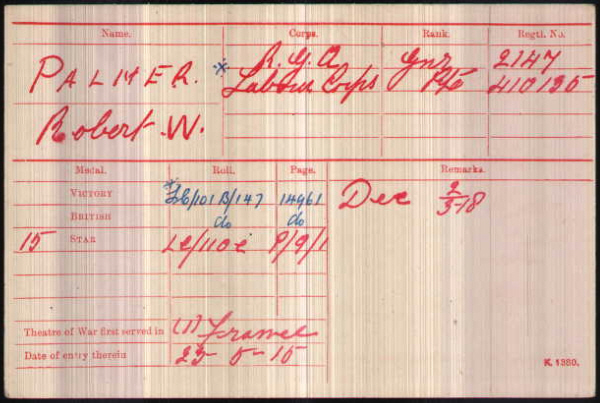 Name. Corps. Rank. Regtl. No.
PALMER. * R.G.A Gnr 2147
Labour Corps Pte 410135
Robert. W.
Medal. Roll. Page. Remarks.
VICTORY * LC/101 B/147 14961 Dec 2/3-18
BRITISH do do
15 STAR LC/110 P/9/1
Theatre of War first served in (1) France
Date of entry therein 23-5-15
K. 1380.